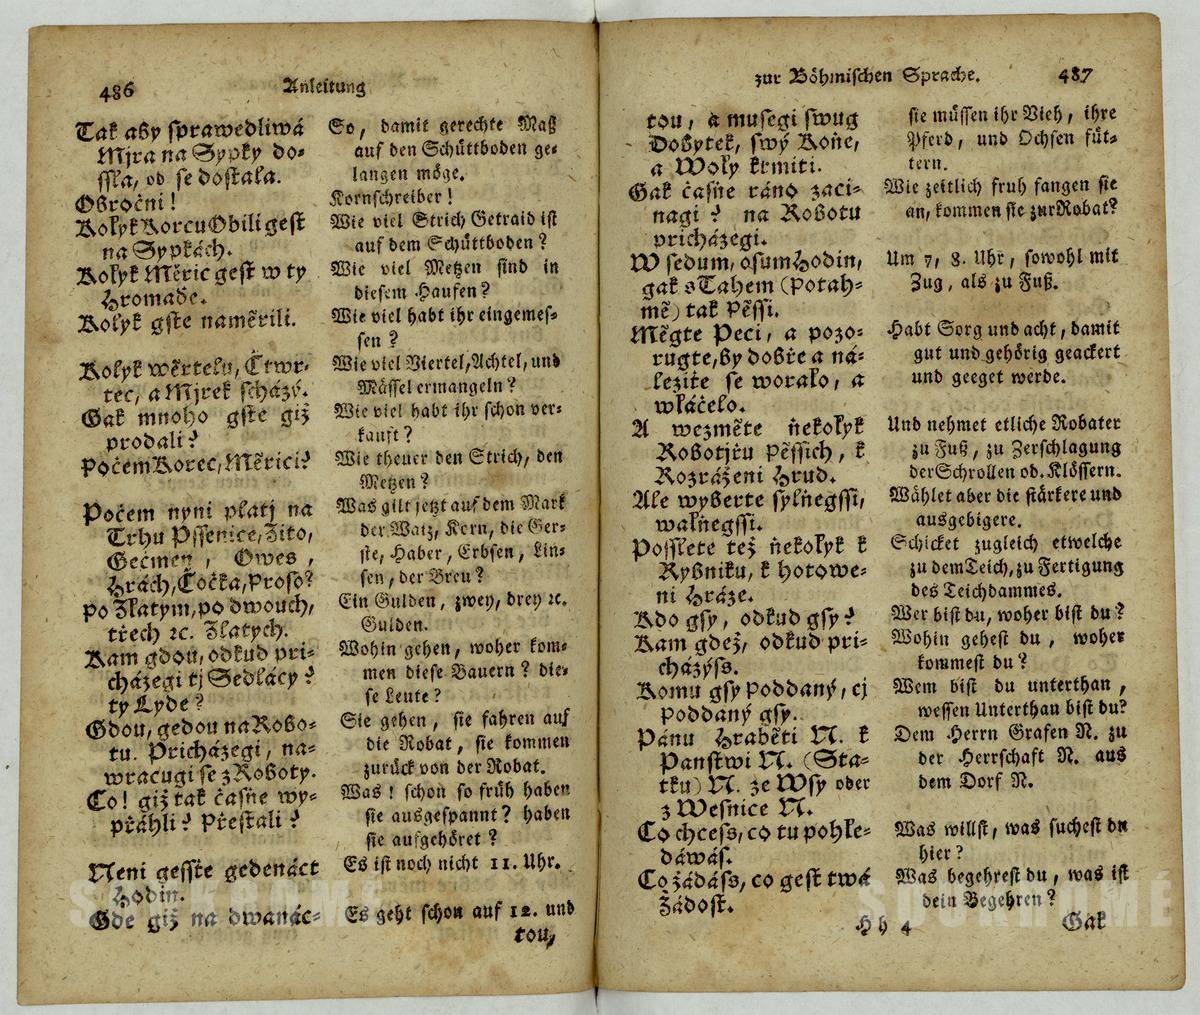 486 Anleitung
Tak aby sprawedliwá
Mjra na Sypky do-
ssla, od se dostala.
Obročnj!
Kolyk Korcu Obilj gest
na Sypkách.
Kolyk Měřic gest w ty
Hromadě.
Kolyk gste naměřili.
Kolyk wěrtelu, Čtwr-
tec, a Mjrek scházý.
Gak mnoho gste giž
prodali?
Počem Korec, Měřici?
Počem nynj platj na
Trhu Pssenice, Žito,
Gečmen, Owes,
Hrách, Čočka, Proso?
po Zlatym, po dwouch,
třech ꝛc. Zlatych.
Kam gdou, odkud při-
cházegi tj Sedlácy?
ty Lyde?
Gdou, gedou na Robo-
tu. Přicházegi, na-
wracugi se z Roboty.
Co! giž tak časňe wy-
přáhli? Přestali?
Neni gesste gedenáct
Hodin.
Gde giž na dwanác-
So, damit gerechte Maß
auf den Schüttboden ge-
langen möge.
Kornschreiber!
Wie viel Strich Getraid ist
auf dem Schüttboden?
Wie viel Metzen sind in
diesem Haufen?
Wie viel habt ihr eingemes-
sen?
Wie viel Viertel, Achtel, und
Mässel ermangeln?
Wie viel habt ihr schon ver-
kauft?
Wie theuer den Strich, den
Metzen?
Was gilt jetzt auf dem Mark
der Waitz, Kern, die Ger-
ste, Haber, Erbsen, Lin-
sen, der Breu?
Ein Gulden, zwey, drey ꝛc.
Gulden.
Wohin gehen, woher kom-
men diese Bauern? die-
se Leute?
Sie gehen, sie fahren auf
die Robat, sie kommen
zurück von der Robat.
Was! schon so früh haben
sie ausgespannt? haben
sie aufgehöret?
Es ist noch nicht 11. Uhr.
Es geht schon auf 12. und
tou,
zur Böhmischen Sprache. 487
tou, a musegi swug
Dobytek, swý Koňe,
a Woly krmiti.
Gak časňe ráno zači-
nagi? na Robotu
přicházegi.
W sedum, osum Hodin,
gak s Tahem (Potah-
mě) tak Pěssi.
Měgte Peci, a pozo-
rugte, by dobře a ná-
ležitě se woralo, a
wláčelo.
A wezměte ňekolyk
Robotjřu Pěssich, k
Rozráženi Hrud.
Ale wyberte sylňegssi,
walňegssi.
Posslete též ňekolyk k
Rybniku, k hotowe-
ni Hráze.
Kdo gsy, odkud gsy?
Kam gdež, odkud při-
cházýss.
Komu gsy Poddaný, cj
Poddaný gsy.
Pánu Hraběti N. k
Panstwi N. (Sta-
tku) N. ze Wsy oder
z Wesnice N.
Co chcess, co tu pohle-
dáwás.
Co žádáss, co gest twá
Žádost.
sie müssen ihr Vieh, ihre
Pferd, und Ochsen füt-
tern.
Wie zeitlich fruh fangen sie
an, kommen sie zur Robat?
Um 7, 8. Uhr, sowohl mit
Zug, als zu Fuß.
Habt Sorg und acht, damit
gut und gehörig geackert
und geeget werde.
Und nehmet etliche Robater
zu Fuß, zu Zerschlagung
der Schrollen od. Klössern.
Wählet aber die stärkere und
ausgebigere.
Schicket zugleich etwelche
zu dem Teich, zu Fertigung
des Teichdammes.
Wer bist du, woher bist du?
Wohin gehest du, woher
kommest du?
Wem bist du unterthan,
wessen Unterthan bist du?
Dem Herrn Grafen N. zu
der Herrschaft N. aus
dem Dorf N.
Was willst, was suchest du
hier?
Was begehrest du, was ist
dein Begehren?
Hh 4 Gak